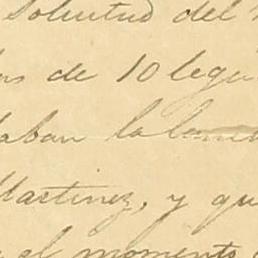 Solicitud del
de 10 legu
aban la
Martinez, y qu
el momento